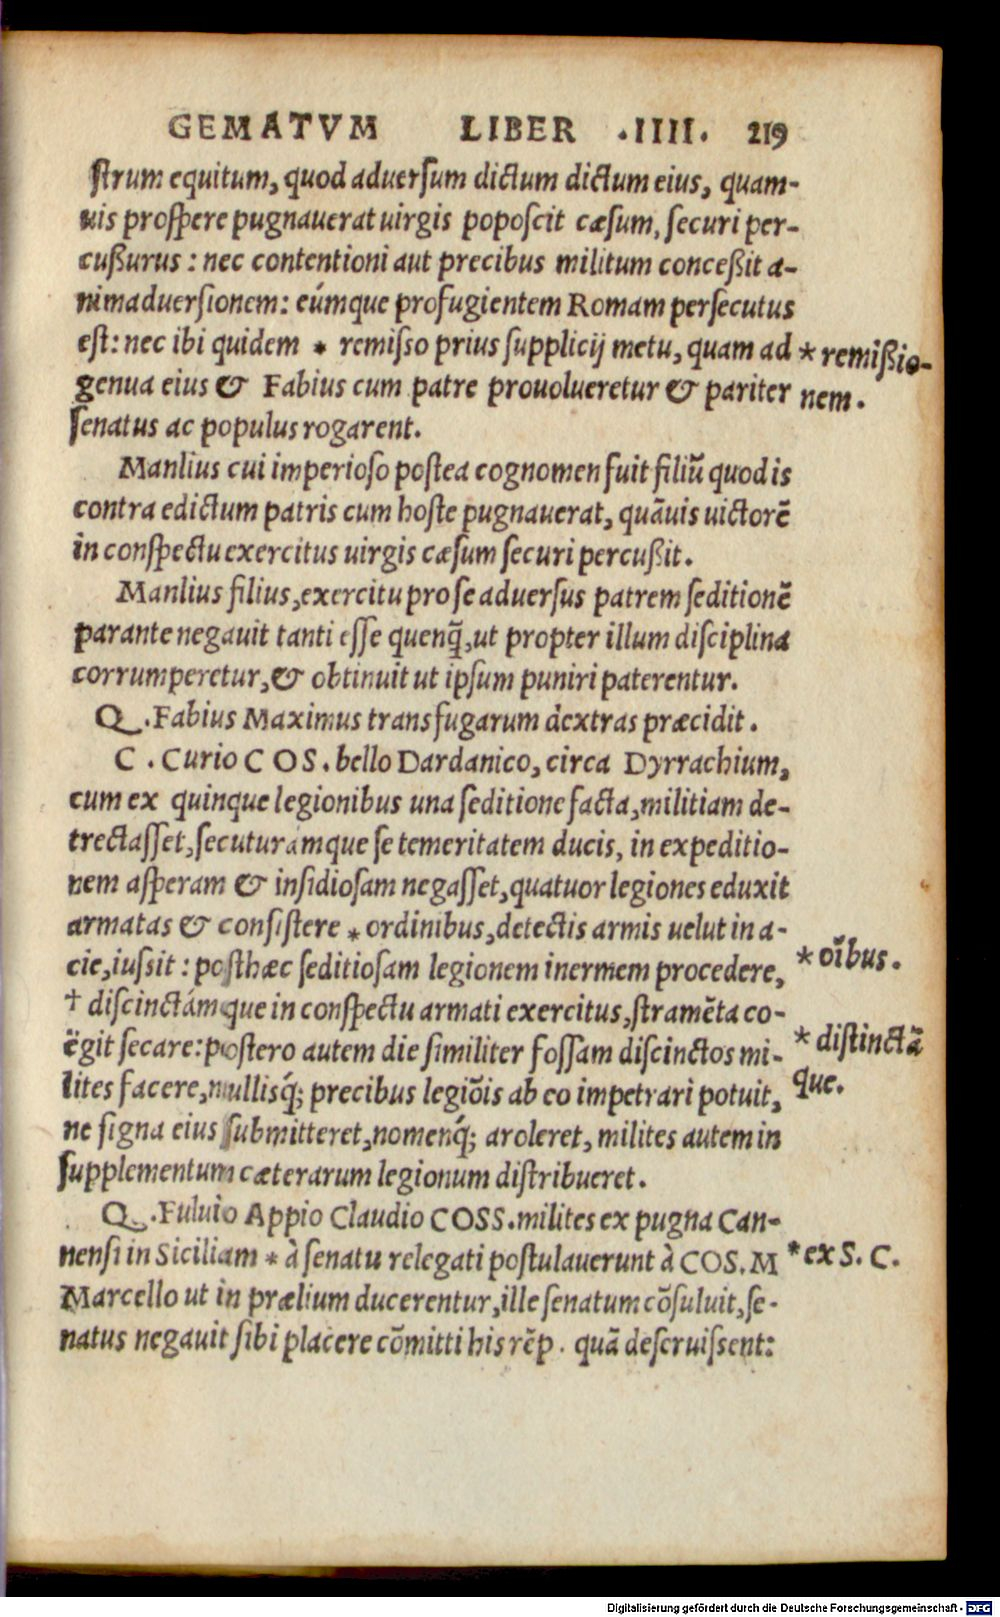 GEMATVM LIBER .IIII. 219
strum equitum, quod aduersum dictum dictum eius, quam-
uis prospere pugnauerat uirgis poposcit cæsum, securi per-
cußurus : nec contentioni aut precibus militum conceßit a-
nimaduersionem: eúmque profugientem Romam persecutus
est: nec ibi quidem * remisso prius supplicij metu, quam ad
* remißio-
genua eius & Fabius cum patre prouolueretur & pariter
nem.
senatus ac populus rogarent.
Manlius cui imperioso postea cognomen fuit filiū quod is
contra edictum patris cum hoste pugnauerat, quāuis uictorē
in conspectu exercitus uirgis cæsum securi percußit.
Manlius filius, exercitu pro se aduersus patrem seditionē
parante negauit tanti esse quenq̃, ut propter illum disciplina
corrumperetur, & obtinuit ut ipsum puniri paterentur.
Q. Fabius Maximus transfugarum dextras præcidit.
C. Curio COS. bello Dardanico, circa Dyrrachium,
cum ex quinque legionibus una seditione facta, militiam de-
trectasset, secuturámque se temeritatem ducis, in expeditio-
nem asperam & insidiosam negasset, quatuor legiones eduxit
armatas & consistere * ordinibus, detectis armis uelut in a-
* oībus.
cie, iussit : posthæc seditiosam legionem inermem procedere,
† discinctámque in conspectu armati exercitus, stramēta co-
* distinctā
ëgit secare: postero autem die similiter fossam discinctos mi-
que.
lites facere, nullisq́; precibus legiōis ab eo impetrari potuit,
ne signa eius submitteret, nomenq́; aroleret, milites autem in
supplementum cæterarum legionum distribueret.
Q. Fuluio Appio Claudio COSS. milites ex pugna Can-
nensi in Siciliam * à senatu relegati postulauerunt à COS. M
* ex S. C.
Marcello ut in prælium ducerentur, ille senatum cōsuluit, se-
natus negauit sibi placere cōmitti his rēp. quā deseruissent:
Digitalisierung gefördert durch die Deutsche Forschungsgemeinschaft - DFG